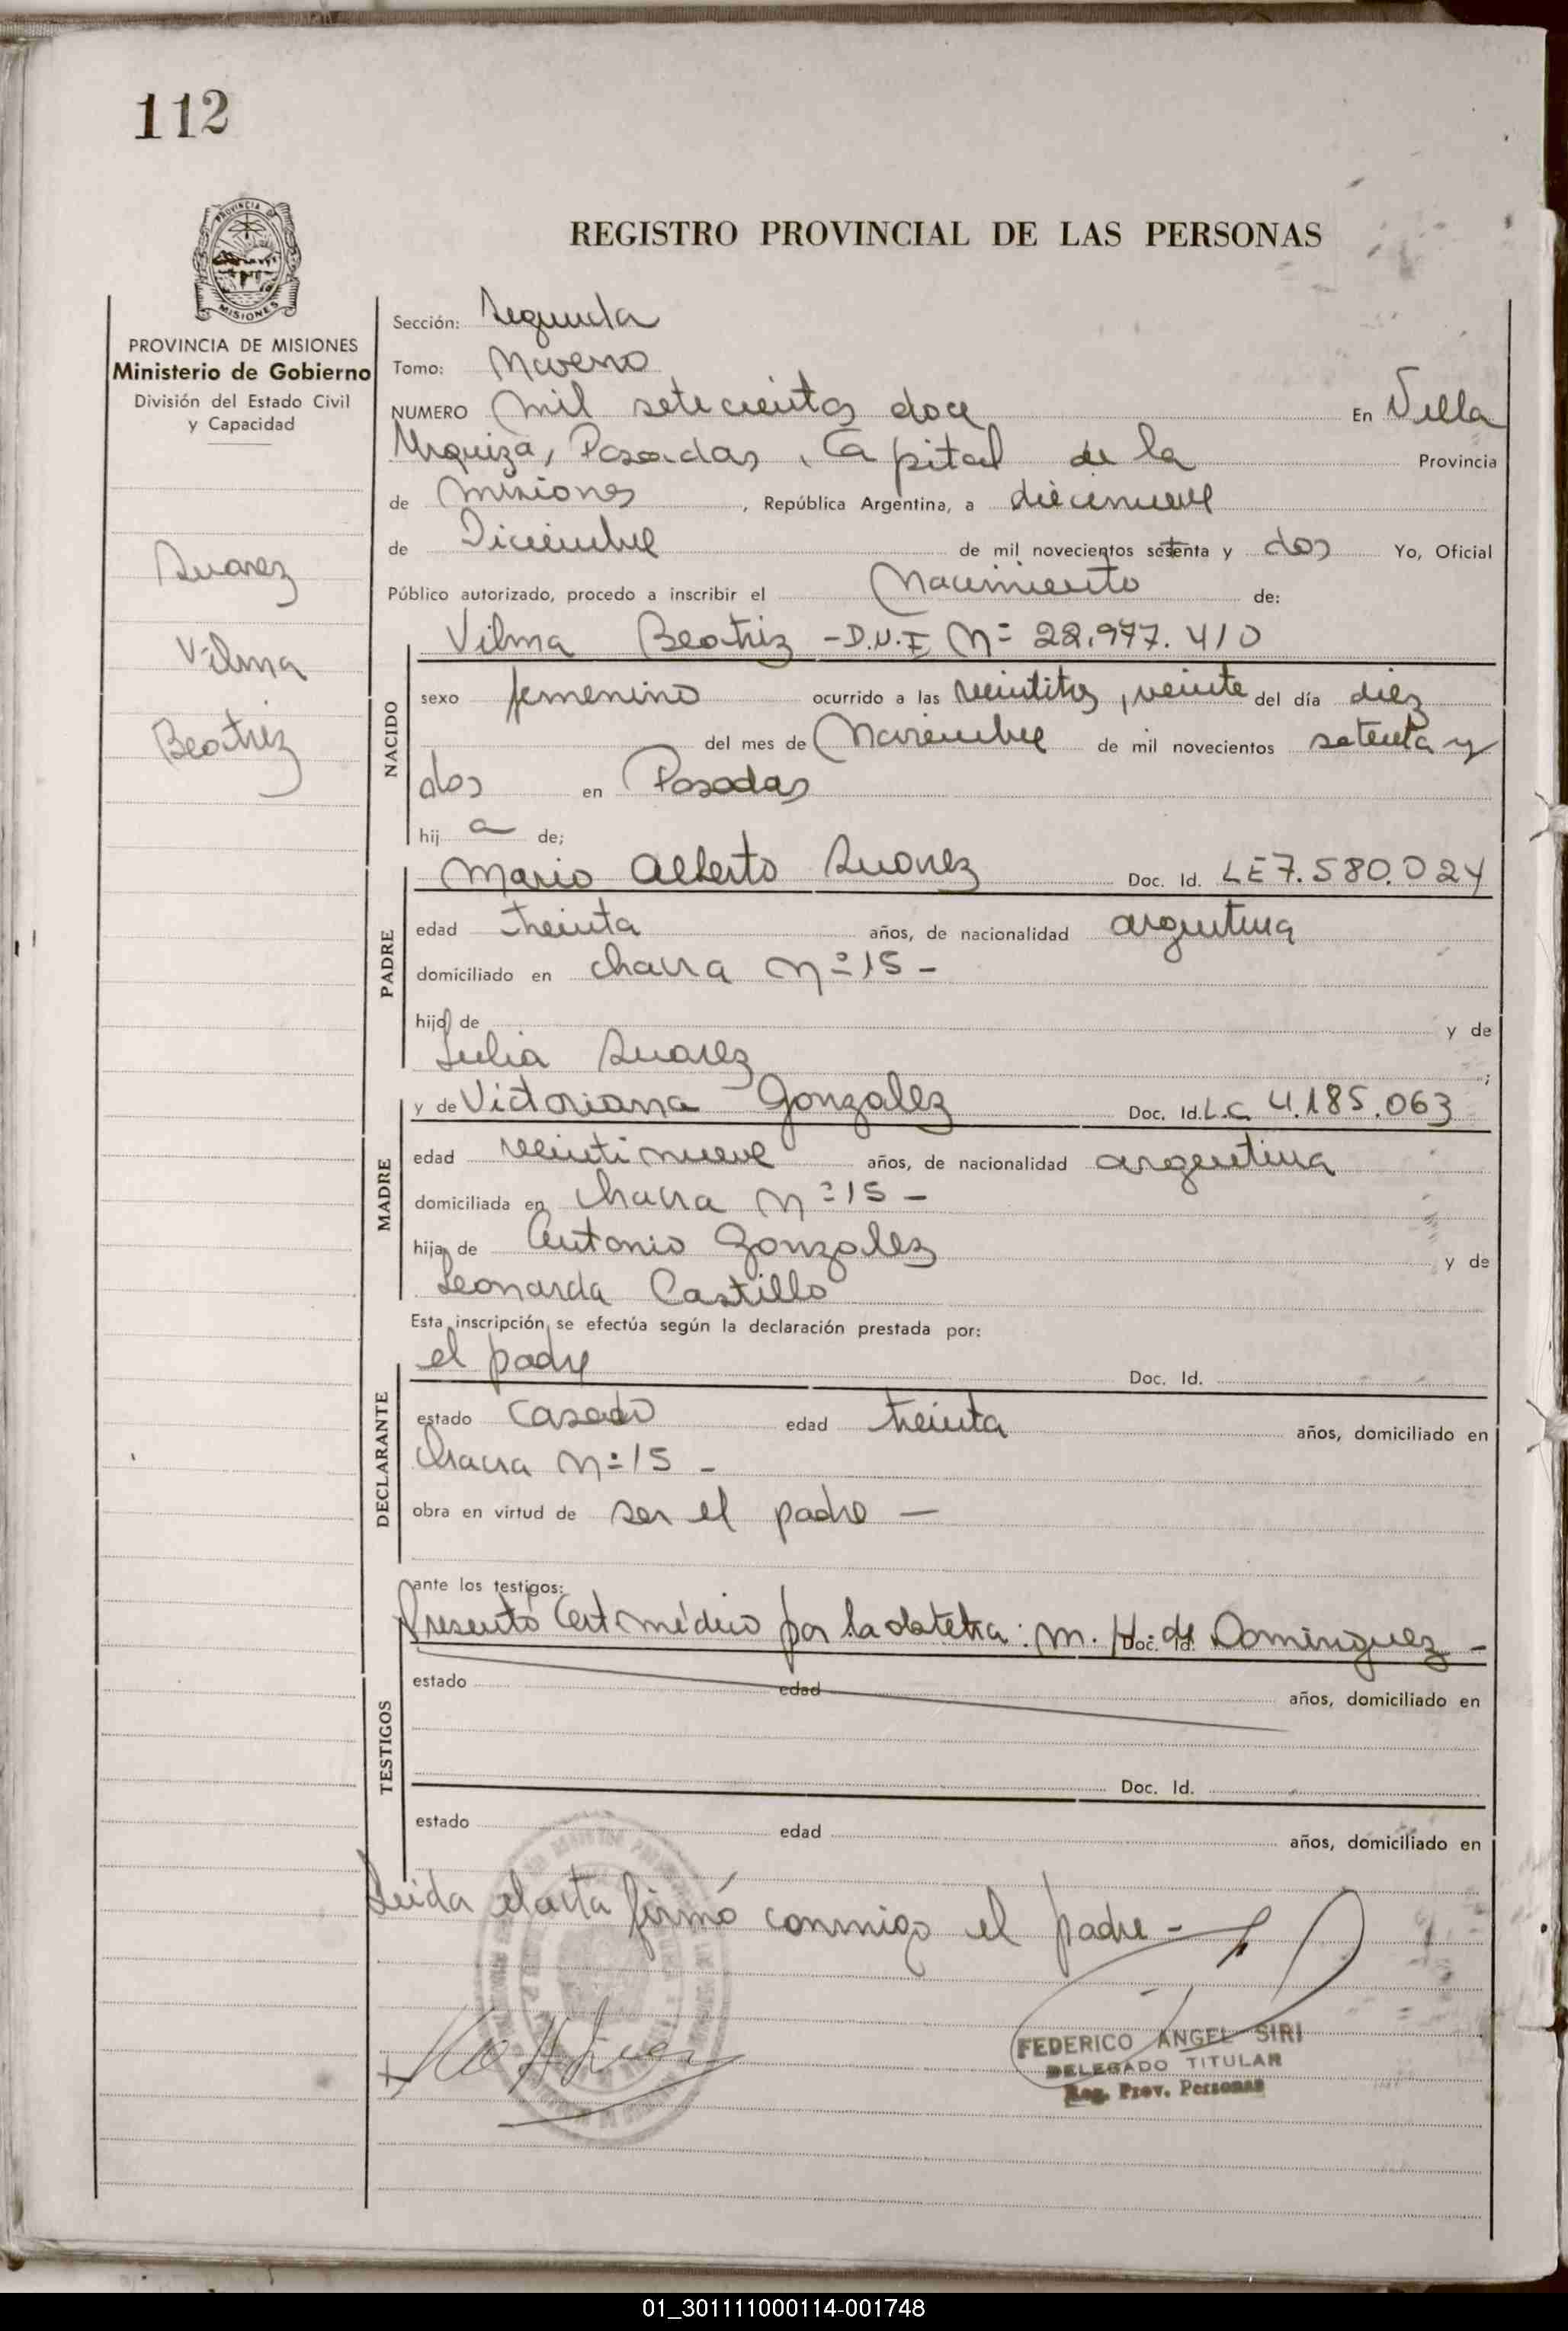 112
PROVINCIA DE
MISIONES
REGISTRO PROVINCIAL DE LAS PERSONAS
PROVINCIA DE MISIONES
Ministerio de Gobierno
División del Estado Civil
y Capacidad
Suarez
Vilma
Beatriz
Sección: Segunda
Tomo: Noveno
NUMERO mil setecientos doce En Villa
Urquiza, Posadas, Capital de la Provincia
de Misiones, República Argentina, a diecinueve
de Diciembre de mil novecientos setenta y dos Yo, Oficial
Público autorizado, procedo a inscribir el Nacimiento de:
Vilma Beatriz - D.N.I Nº 22.977.410
NACIDO
sexo femenino ocurrido a las veintitrés, veinte del día diez
del mes de Noviembre de mil novecientos setenta y
dos en Posadas
hij a de;
Mario Alberto Suarez Doc. Id. LE 7.580.024
PADRE
edad treinta años, de nacionalidad argentina
domiciliado en chacra Nº 15 -
hijo de y de
Julia Suarez ;
y de Victoriana Gonzalez Doc. Id. L.C 4.185.063
MADRE
edad veintinueve años, de nacionalidad argentina
domiciliada en chacra Nº 15 -
hija de Antonio Gonzalez y de
Leonarda Castillo
Esta inscripción se efectúa según la declaración prestada por:
el padre Doc. Id.
DECLARANTE
estado casado edad treinta años, domiciliado en
chacra Nº 15 -
obra en virtud de ser el padre -
ante los testigos:
Presentó Cert médico por la obstetra: M. H. de Dominguez - Doc. Id.
TESTIGOS
estado edad años, domiciliado en
Doc. Id.
estado edad años, domiciliado en
Leida el acta firmó conmigo el padre -
FEDERICO ANGEL SIRI
DELEGADO TITULAR
Reg. Prov. Personas
01_301111000114-001748